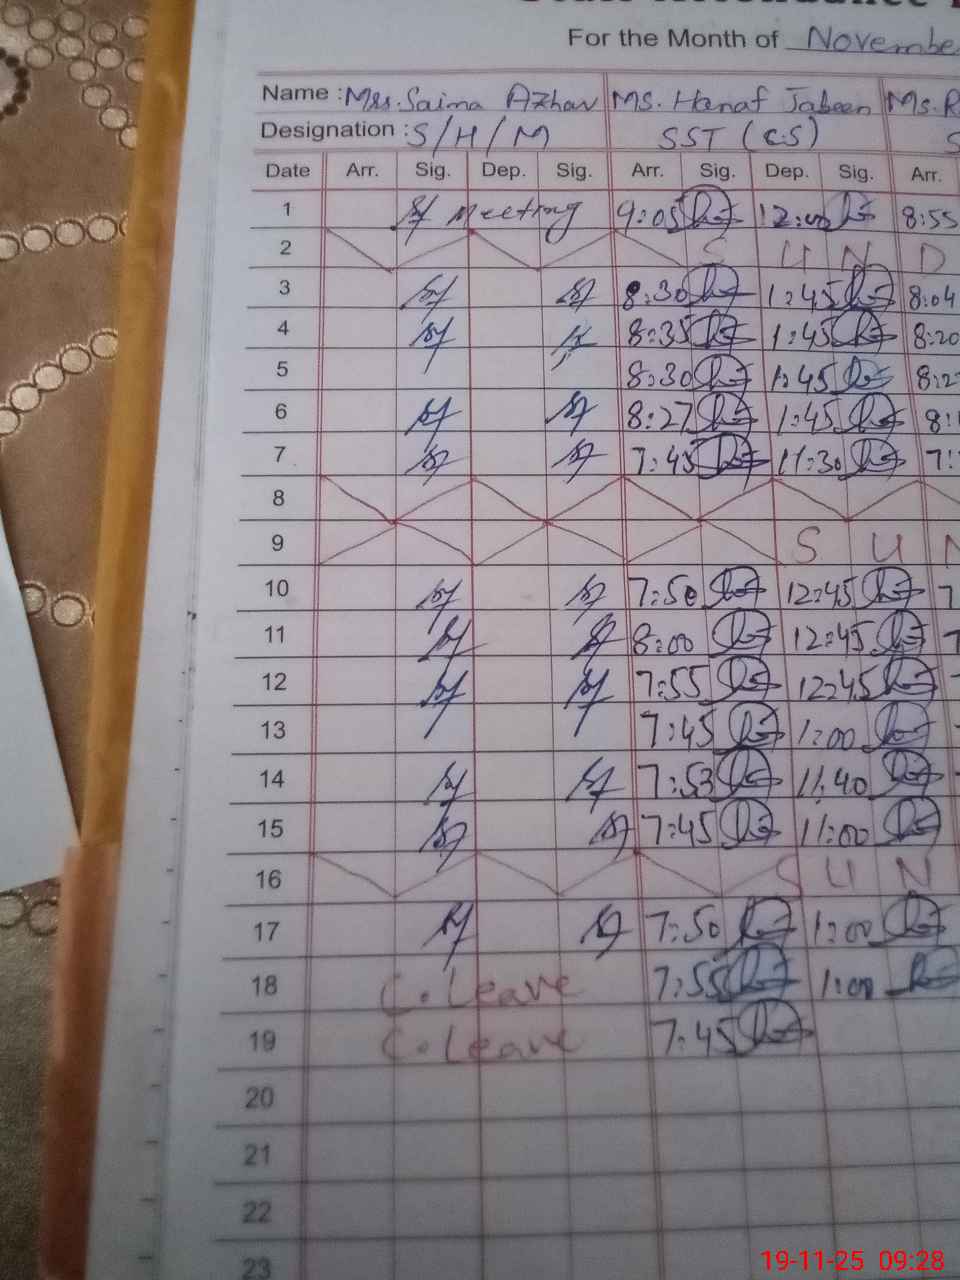 For the Month of November
Name : Mrs. Saima Azhar Ms. Hanaf Jabeen Ms. R
Designation : S/H/M SST (CS) S
Date Arr. Sig. Dep. Sig. Arr. Sig. Dep. Sig. Arr.
1 Meeting 9:05 12:00 8:55
2 S U N D
3 8:30 1:45 8:04
4 8:35 1:45 8:20
5 8:30 1:45 8:2
6 8:27 1:45 8:
7 7:45 11:30 7:
8
9 S U N
10 7:50 12:45 7
11 8:00 12:45 7
12 7:55 12:45
13 7:45 1:00
14 7:53 11:40
15 7:45 11:00
16 S U N
17 7:50 1:00
18 C. Leave 7:55 1:00
19 C. Leave 7:45
20
21
22
23
19-11-25 09:28